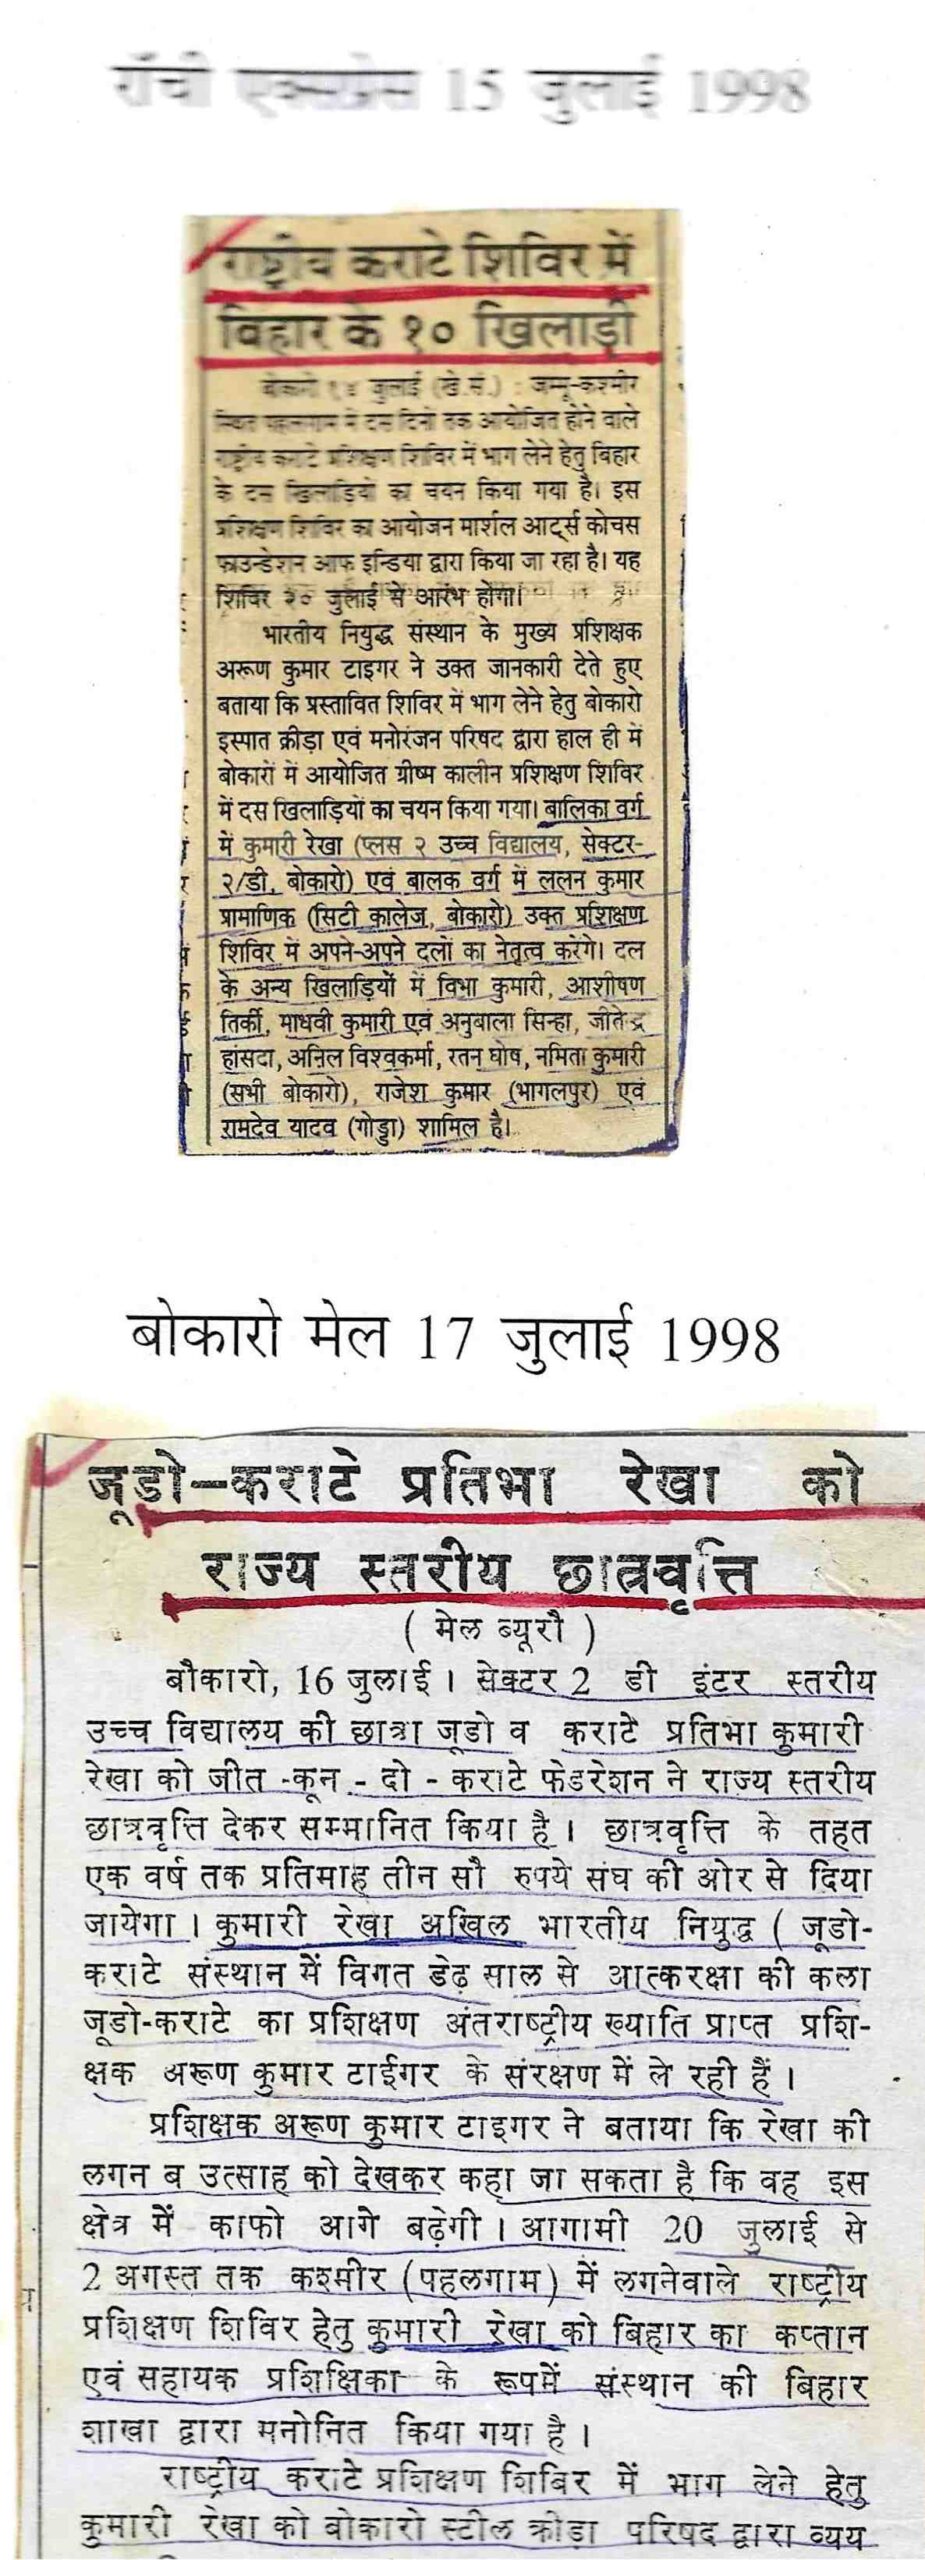 राँची एक्सप्रेस 15 जुलाई 1998
राष्ट्रीय कराटे शिविर में
बिहार के १० खिलाड़ी
बोकारो १४ जुलाई (खे.सं.) : जम्मू-कश्मीर
स्थित पहलगाम में दस दिनों तक आयोजित होने वाले
राष्ट्रीय कराटे प्रशिक्षण शिविर में भाग लेने हेतु बिहार
के दस खिलाड़ियों का चयन किया गया है। इस
प्रशिक्षण शिविर का आयोजन मार्शल आर्ट्स कोचस
फाउन्डेशन आफ इन्डिया द्वारा किया जा रहा है। यह
शिविर २० जुलाई से आरंभ होगा।
भारतीय नियुद्ध संस्थान के मुख्य प्रशिक्षक
अरूण कुमार टाइगर ने उक्त जानकारी देते हुए
बताया कि प्रस्तावित शिविर में भाग लेने हेतु बोकारो
इस्पात क्रीड़ा एवं मनोरंजन परिषद द्वारा हाल ही में
बोकारों में आयोजित ग्रीष्म कालीन प्रशिक्षण शिविर
में दस खिलाड़ियों का चयन किया गया। बालिका वर्ग
में कुमारी रेखा (प्लस २ उच्च विद्यालय, सेक्टर-
२/डी, बोकारो) एवं बालक वर्ग में ललन कुमार
प्रामाणिक (सिटी कालेज, बोकारो) उक्त प्रशिक्षण
शिविर में अपने-अपने दलों का नेतृत्व करेंगे। दल
के अन्य खिलाड़ियों में विभा कुमारी, आशीषण
तिर्की, माधवी कुमारी एवं अनुबाला सिन्हा, जीतेन्द्र
हांसदा, अनिल विश्वकर्मा, रतन घोष, नमिता कुमारी
(सभी बोकारो), राजेश कुमार (भागलपुर) एवं
रामदेव यादव (गोड्डा) शामिल है।
बोकारो मेल 17 जुलाई 1998
जूडो-कराटे प्रतिभा रेखा को
राज्य स्तरीय छात्रवृत्ति
( मेल ब्यूरौ )
बौकारो, 16 जुलाई । सेक्टर 2 डी इंटर स्तरीय
उच्च विद्यालय की छात्रा जूडो व कराटे प्रतिभा कुमारी
रेखा को जीत -कून - दो - कराटे फेडरेशन ने राज्य स्तरीय
छात्रवृत्ति देकर सम्मानित किया है । छात्रवृत्ति के तहत
एक वर्ष तक प्रतिमाह तीन सौ रुपये संघ की ओर से दिया
जायेगा । कुमारी रेखा अखिल भारतीय नियुद्ध ( जूडो-
कराटे संस्थान में विगत डेढ़ साल से आत्करक्षा की कला
जूडो-कराटे का प्रशिक्षण अंतराष्ट्रीय ख्याति प्राप्त प्रशि-
क्षक अरूण कुमार टाईगर के संरक्षण में ले रही हैं ।
प्रशिक्षक अरूण कुमार टाइगर ने बताया कि रेखा की
लगन ब उत्साह को देखकर कहा जा सकता है कि वह इस
क्षेत्र में काफो आगे बढ़ेगी । आगामी 20 जुलाई से
2 अगस्त तक कश्मीर (पहलगाम) में लगनेवाले राष्ट्रीय
प्रशिक्षण शिविर हेतु कुमारी रेखा को बिहार का कप्तान
एवं सहायक प्रशिक्षिका के रूपमें संस्थान की बिहार
शाखा द्वारा मनोनित किया गया है ।
राष्ट्रीय कराटे प्रशिक्षण शिबिर में भाग लेने हेतु
कुमारी रेखा को बोकारो स्टील क्रीड़ा परिषद द्वारा व्यय